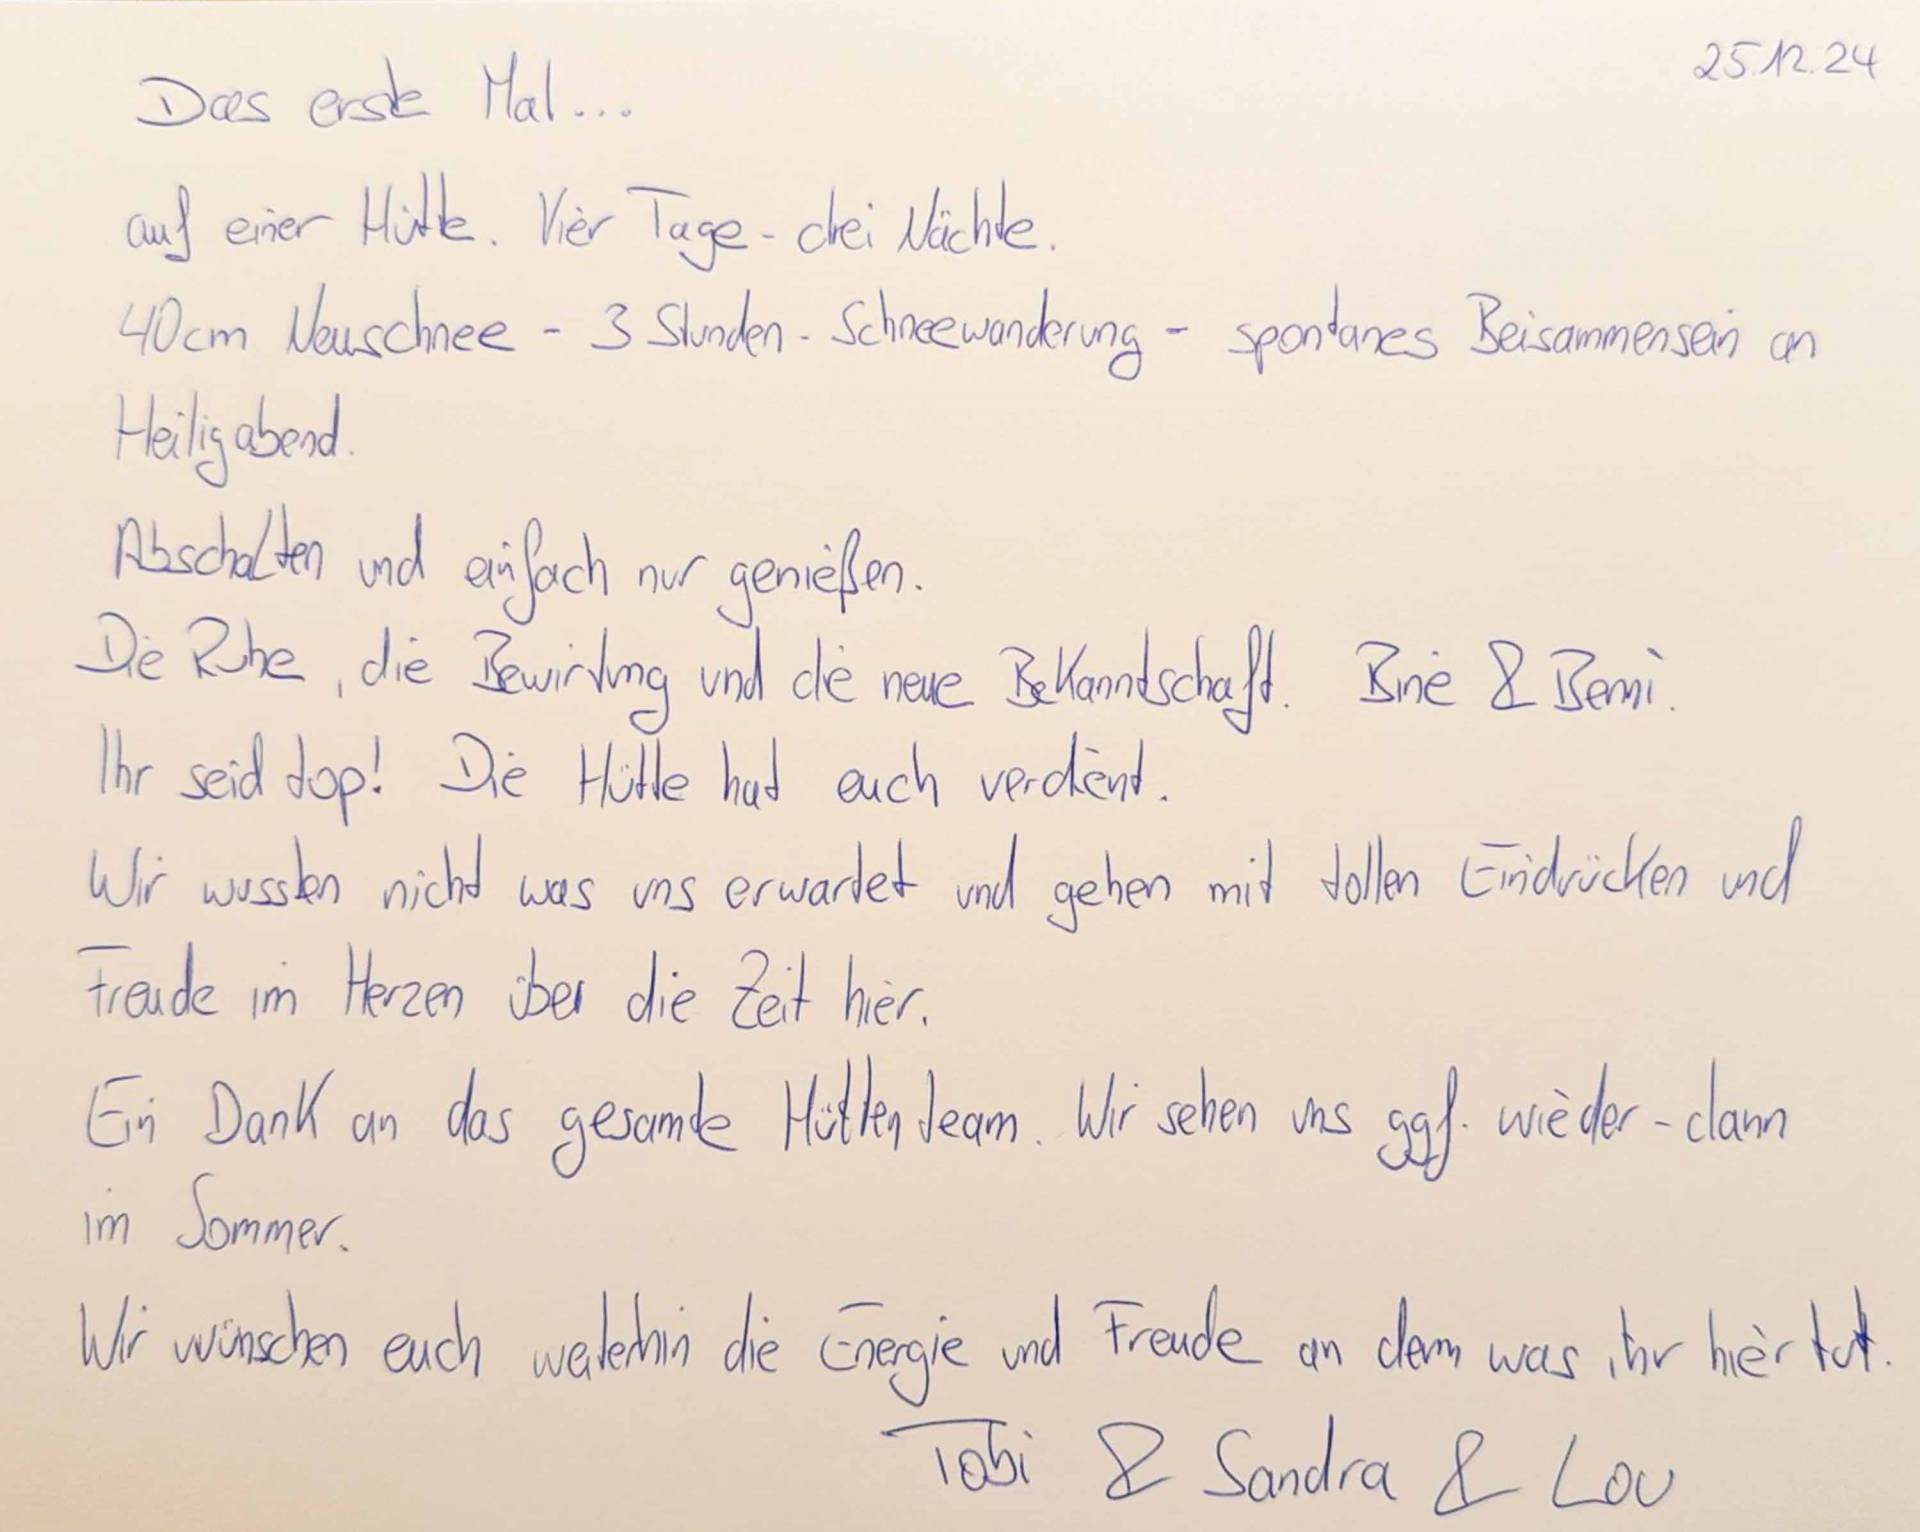 25.12.24
Das erste Mal...
auf einer Hütte. Vier Tage - drei Nächte.
40cm Neuschnee - 3 Stunden - Schneewanderung - spontanes Beisammensein an
Heiligabend.
Abschalten und einfach nur genießen.
Die Ruhe, die Bewirtung und die neue Bekanntschaft. Bine & Berni.
Ihr seid top! Die Hütte hat euch verdient.
Wir wussten nicht was uns erwartet und gehen mit tollen Eindrücken und
Freude im Herzen über die Zeit hier.
Ein Dank an das gesamte Hüttenteam. Wir sehen uns ggf. wieder - dann
im Sommer.
Wir wünschen euch weiterhin die Energie und Freude an dem was ihr hier tut.
Tobi & Sandra & Lou